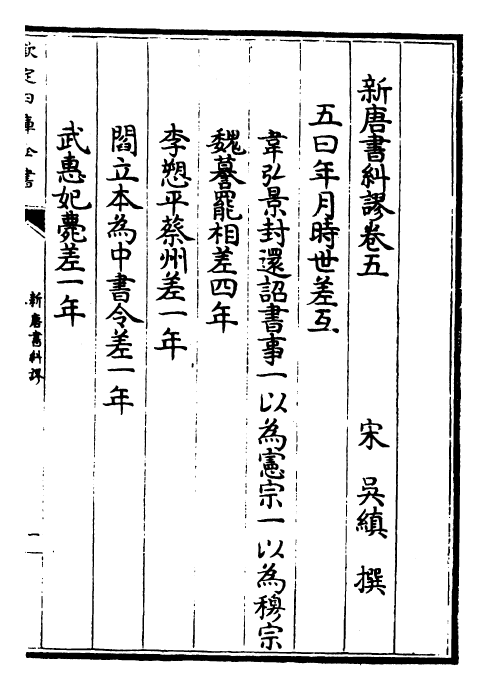 新唐書糾謬卷五
宋 吳縝 撰
五曰年月時世差互
韋弘景封還詔書事一以為憲宗一以為穆宗
魏謩罷相差四年
李愬平蔡州差一年
閻立本為中書令差一年
武惠妃薨差一年
欽定四庫全書
新唐書糾謬
一